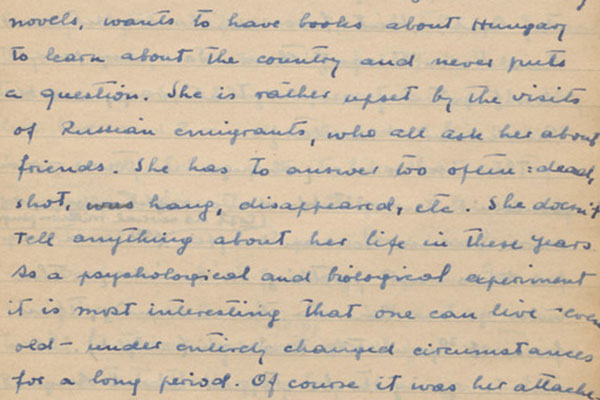 novels, wants to have books about Hungary
to learn about the country and never puts
a question. She is rather upset by the visits
of Russian emigrants, who all ask her about
friends. She has to answer too often: dead,
shot, was hang, disappeared, etc. She doesn't
tell anything about her life in these years.
As a psychological and biological experiment
it is most interesting that one can live - even
old - under entirely changed circumstances
for a long period. Of course it was her attache-